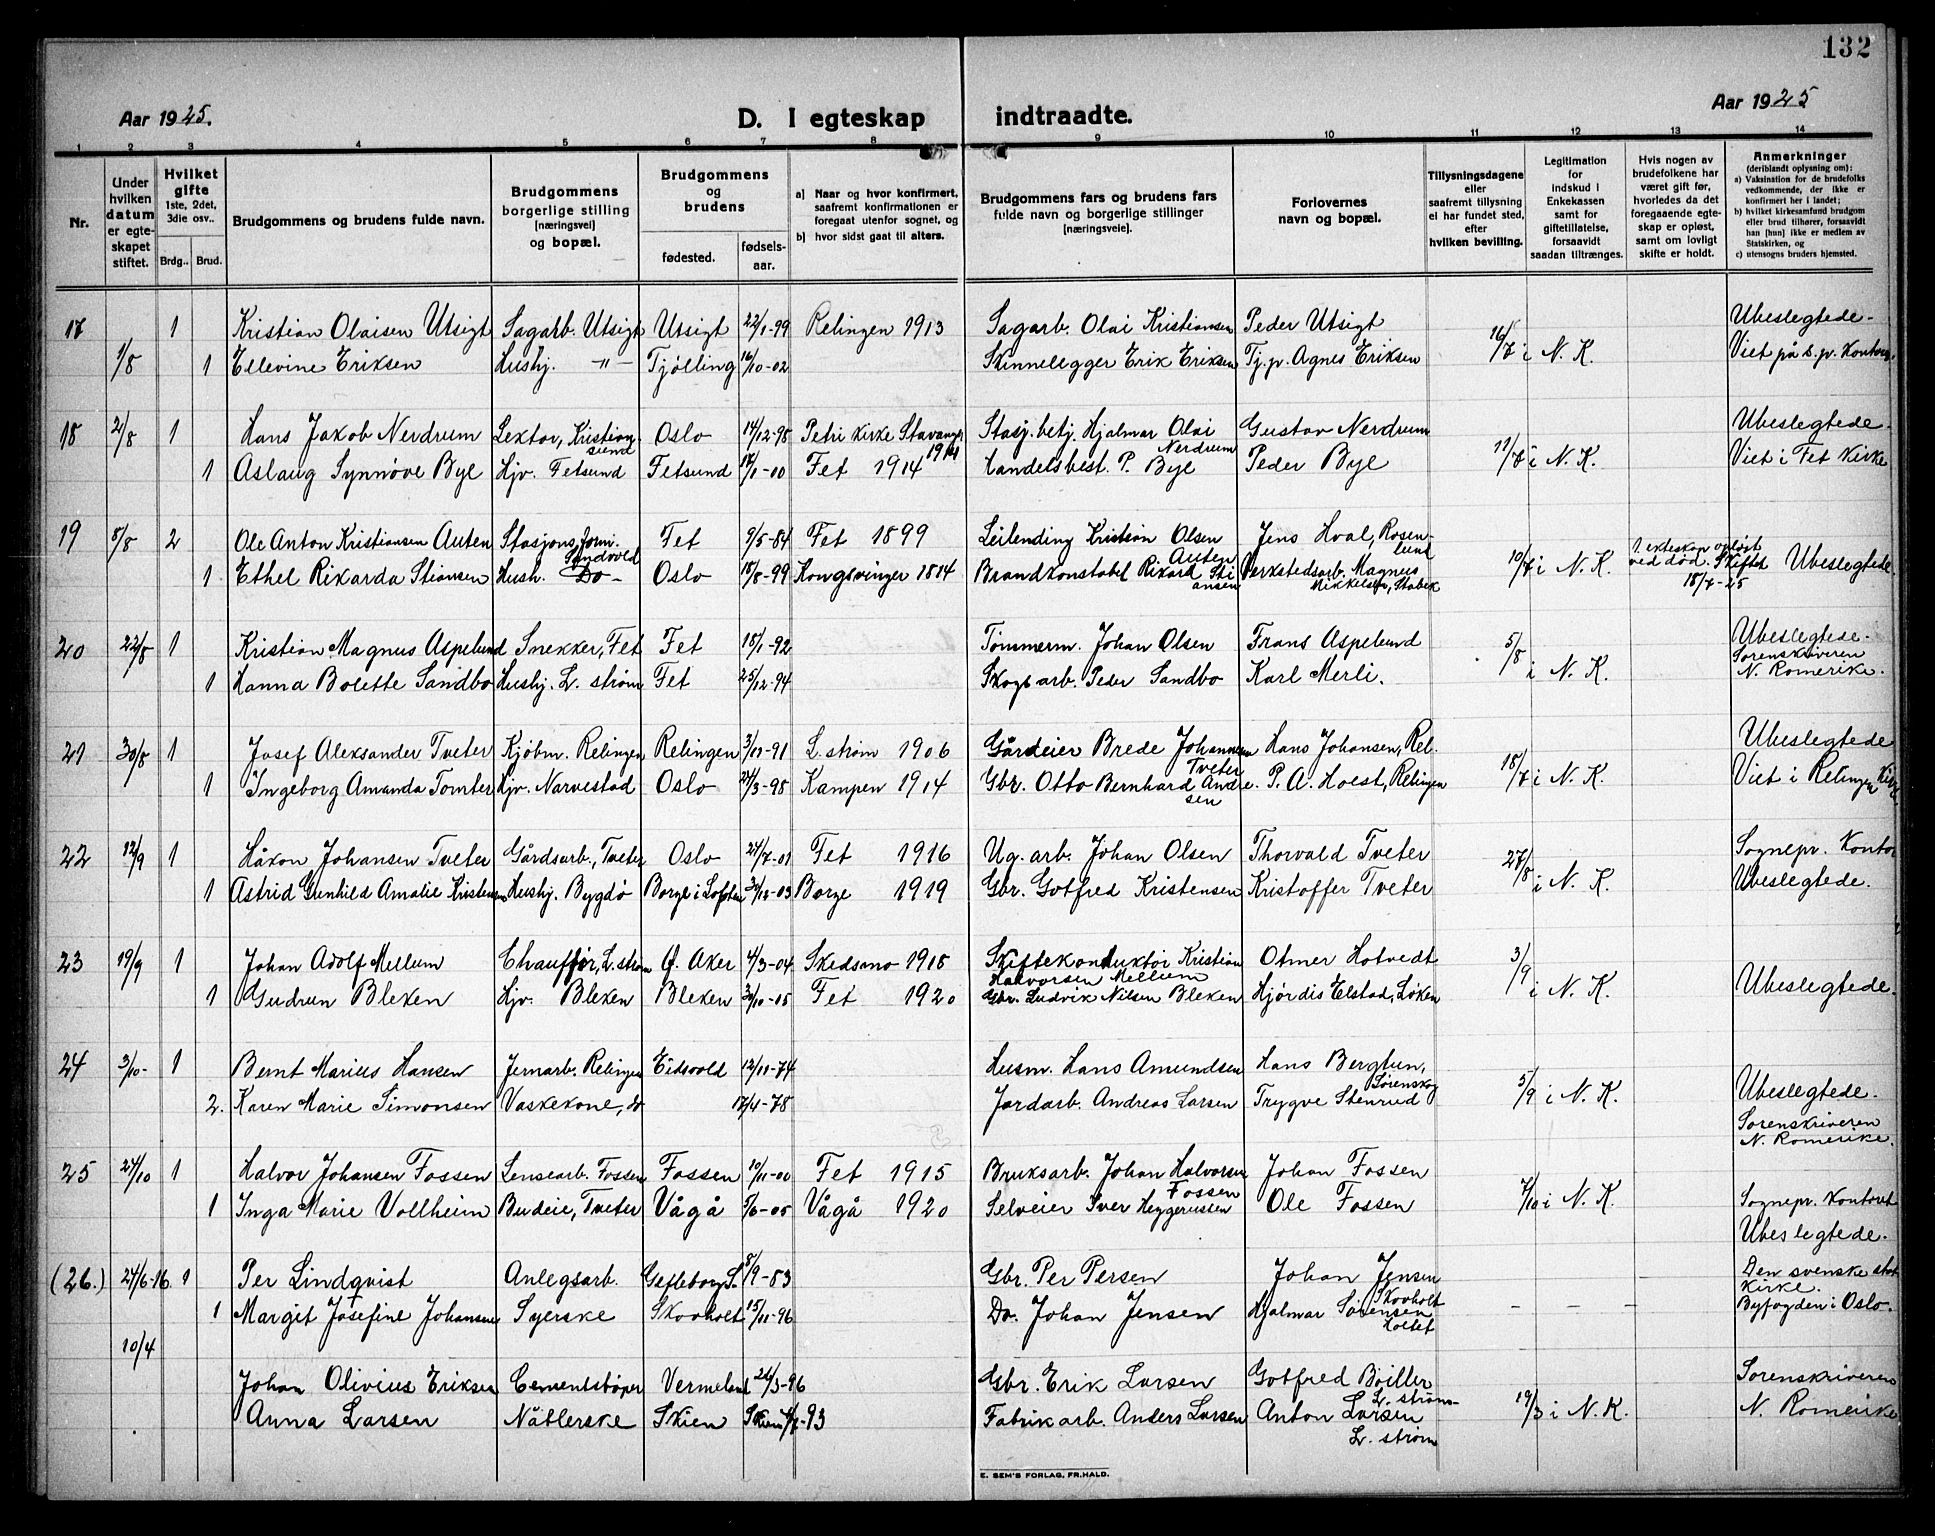 132
Aar 1925. D. I egteskap indtraadte. Aar 1925
1 2 3 4 5 6 7 8 9 10 11 12 13 14
Nr.
Under hvilken datum er egteskapet stiftet.
Hvilket gifte 1ste, 2det, 3die osv..
Brdg.. Brud.
Brudgommens og brudens fulde navn.
Brudgommens borgerlige stilling [næringsvei] og bopæl.
Brudgommens og brudens
fødested. fødsels-aar.
a) Naar og hvor konfirmert, saafremt konfirmationen er foregaat utenfor sognet, og
b) hvor sidst gaat til alters.
Brudgommens fars og brudens fars fulde navn og borgerlige stillinger [næringsveie].
Forlovernes navn og bopæl.
Tillysningsdagene eller saafremt tillysning ei har fundet sted, efter hvilken bevilling.
Legitimation for indskud i Enkekassen samt for giftetillatelse, forsaavidt saadan tiltrænges.
Hvis nogen av brudefolkene har været gift før, hvorledes da det foregaaende egteskap er opløst, samt om lovligt skifte er holdt.
Anmerkninger (deriblandt oplysning om): a) Vaksination for de brudefolks vedkommende, der ikke er konfirmert her i landet; b) hvilket kirkesamfund brudgom eller brud tilhører, forsaavidt han [hun] ikke er medlem av Statskirken, og c) utensogns bruders hjemsted.
17 1 Kristian Olaisen Utsigt Sagarb. Utsigt Utsigt 22/1-99 Relingen 1913 Sagarb. Olai Kristiansen Peder Utsigt 16/7 i N. K. Ubeslegtede-
1/8 1 Ellevine Eriksen Hushj. -"- Tjølling 16/10-02 Skinnelegger Erik Eriksen Tj.p. Agnes Eriksen Viet på s.pr. Kontor.
18 2/8 1 Hans Jakob Nerdrum Lektor, Kristiansund Oslo 14/12-98 Petri kirke Stavanger 1914 Stasj.betj. Hjalmar Olai Nerdrum Gustav Nerdrum 11/7 i N. K. Ubeslegtede.
1 Aslaug Synnøve Bye Hjv. Fetsund Fetsund 17/1-00 Fet 1914 Handelsbest. P. Bye Peder Bye Viet i Fet Kirke
19 5/8 2 Ole Anton Kristiansen Auten Stasjons form. Sandvold Fet 9/5-84 Fet 1899 Leilending Kristian Olsen Auten Jens Hval, Rosenlund 10/7 i N. K. 1. ekteskap opløst ved død. Skiftet 18/7-25 Ubeslegtede.
1 Ethel Rikarda Stiansen Hush. Do- Oslo 18/8-99 Kongsvinger 1814 Brandkonstabel Rikard Stiansen Verkstedsarb. Magnus Mikkelsen, Stabek
20 22/8 1 Kristian Magnus Aspelund Snekker, Fet Fet 18/1-92 Tømmerm. Johan Olsen Frans Aspelund 5/8 i N. K. Ubeslegtede.
1 Hanna Bolette Sandbo Hushj. L. strøm Fet 25/12-94 Skogsarb. Peder Sandbo Karl Merli. Sorenskriveren N. Romerike.
21 30/8 1 Josef Aleksander Tveter Kjøbm. Relingen Relingen 3/11-91 L.strøm 1906 Gårdeier Brede Johannesen Tveter Hans Johansen, Rel. 18/7 i N. K. Ubeslegtede
1 Ingeborg Amanda Tomter Hjv. Narvestad Oslo 24/3-98 Kampen 1914 Gbr. Otto Bernhard Andresen P. A. Holst, Relingen Viet i Relingen Kirke
22 12/9 1 Håkon Johansen Tveter Gårdsarb., Tveter Oslo 24/7-01 Fet 1916 Ug. arb. Johan Olsen Thorvald Tveter 27/8 i N. K. Sognepr. Kontor
1 Astrid Gunhild Amalie Kristensen Hushj. Bygdø Borge i Lofoten 30/12-03 Borge 1919 Gbr. Gotfred Kristensen Kristoffer Tveter Ubeslegtede.
23 19/9 1 Johan Adolf Mellum Chauffør, L.strøm Ø. Aker 4/3-04 Skedsmo 1918 Skiftekonduktør Kristian Halvorsen Mellum Otmer Hotvedt 3/9 i N. K. Ubeslegtede.
1 Gudrun Bleken Hjv. Bleken Bleken 30/10-05 Fet 1920 Gbr. Ludvik Nilsen Bleken Hjørdis Elstad, Løken
24 3/10- 1 Bernt Marius Hansen Jernarb. Relingen Eidsvold 12/11-74 Husm. Hans Amundsen Hans Bergtun, Sørenskog 5/9 i N. K. Ubeslegtede.
2. Karen Marie Simonsen Vaskekone, do 17/4-78 Jordarb. Andreas Larsen Trygve Stenrud Sorenskriveren N. Romerike.
25 24/10 1 Halvor Johansen Fossen Lensearb. Fossen Fossen 10/11-00 Fet 1915 Bruksarb. Johan Halvorsen Fossen Johan Fossen 7/10 i N. K. Sognepr. Kontoret
1 Inga Marie Vollheim Budeie, Tveter Vågå 5/6-05 Vågå 1920 Selveier Iver Heggerusten Ole Fossen Ubeslegtede.
(26.) 24/6-16 1 Per Lindqvist Anlegsarb. Gefleborg L. 8/9-83 Gbr. Per Persen Johan Jensen Skovholt Den svenske stats Kirke.
1 Margit Josefine Johansen Syerske Skovholt 15/11-96 Do. Johan Jensen Hjalmar Sørensen Holtet - - - Byfogden i Oslo.
10/4
Johan Olivius Eriksen Cementstøper Vermeland 26/3-96 Gbr. Erik Larsen Gotfred Bøiller L. strøm 19/3 i N. K. Sorenskriveren
Anna Larsen Nåtlerske Skien -93 Fabrikarb. Anders Larsen Anton Larsen L. strøm N. Romerike
E. SEM'S FORLAG, FR.HALD.